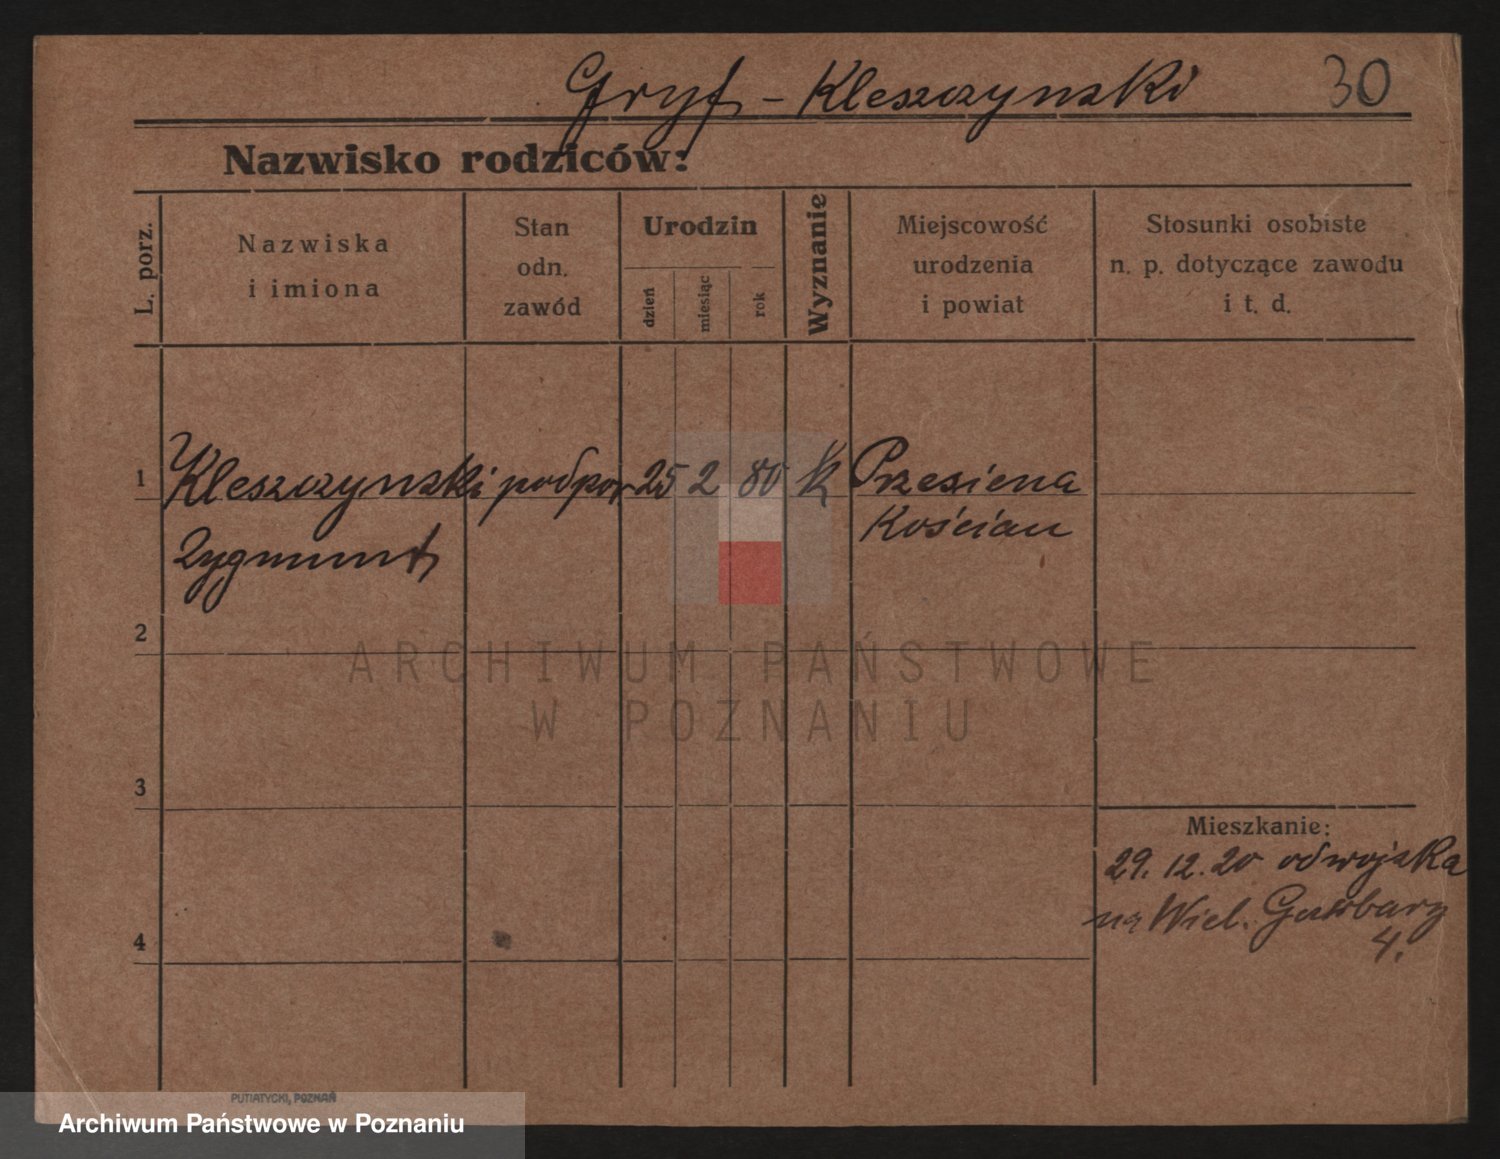 Gryf - Kleszczynski 30
Nazwisko rodziców:
L. porz.
Nazwiska
i imiona
Stan
odn.
zawód
Urodzin
dzień
miesiąc
rok
Wyznanie
Miejscowość
urodzenia
i powiat
Stosunki osobiste
n. p. dotyczące zawodu
i t. d.
1 Kleszczynski podpor 25 2 80 K Przesiena
Zygmunt Kościan
2
ARCHIWUM PAŃSTWOWE
W POZNANIU
3
Mieszkanie:
29. 12. 20 od wojska
na Wiel. Garbary
4.
4
PUTIATYCKI, POZNAŃ
Archiwum Państwowe w Poznaniu